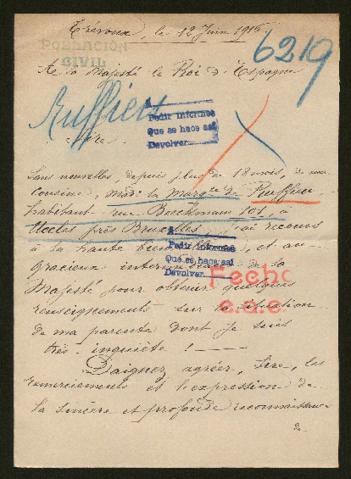 Trévoux, le 12 Juin 1916
POBLACIÓN
CIVIL
6219
A Sa Majesté le Roi d'Espagne
Ruffieu
Pedir informes
Que se hace así
Devolver
Sire
Sans nouvelles, depuis plus de 18 mois, de ma
cousine, Made la Marqse de Ruffieu
habitant rue Beeckman 101, à
Uccles près Bruxelles, j'ai recours
à la haute et au
Pedir informes
Que se hace así
Devolver
gracieux de Sa
Fecho
Majesté pour obtenir quelques
renseignements sur la situation
de ma parente dont je suis
très inquiète ! —
Daignez agréer, Sire, les
remerciements et l'expression de
la sincère et profonde reconnaissan-